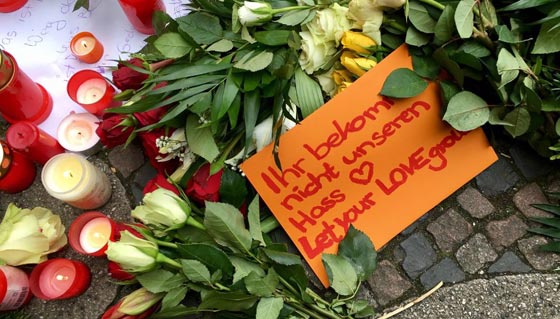 Ihr bekommt
nicht unseren
Hass ♡
Let your LOVE grow